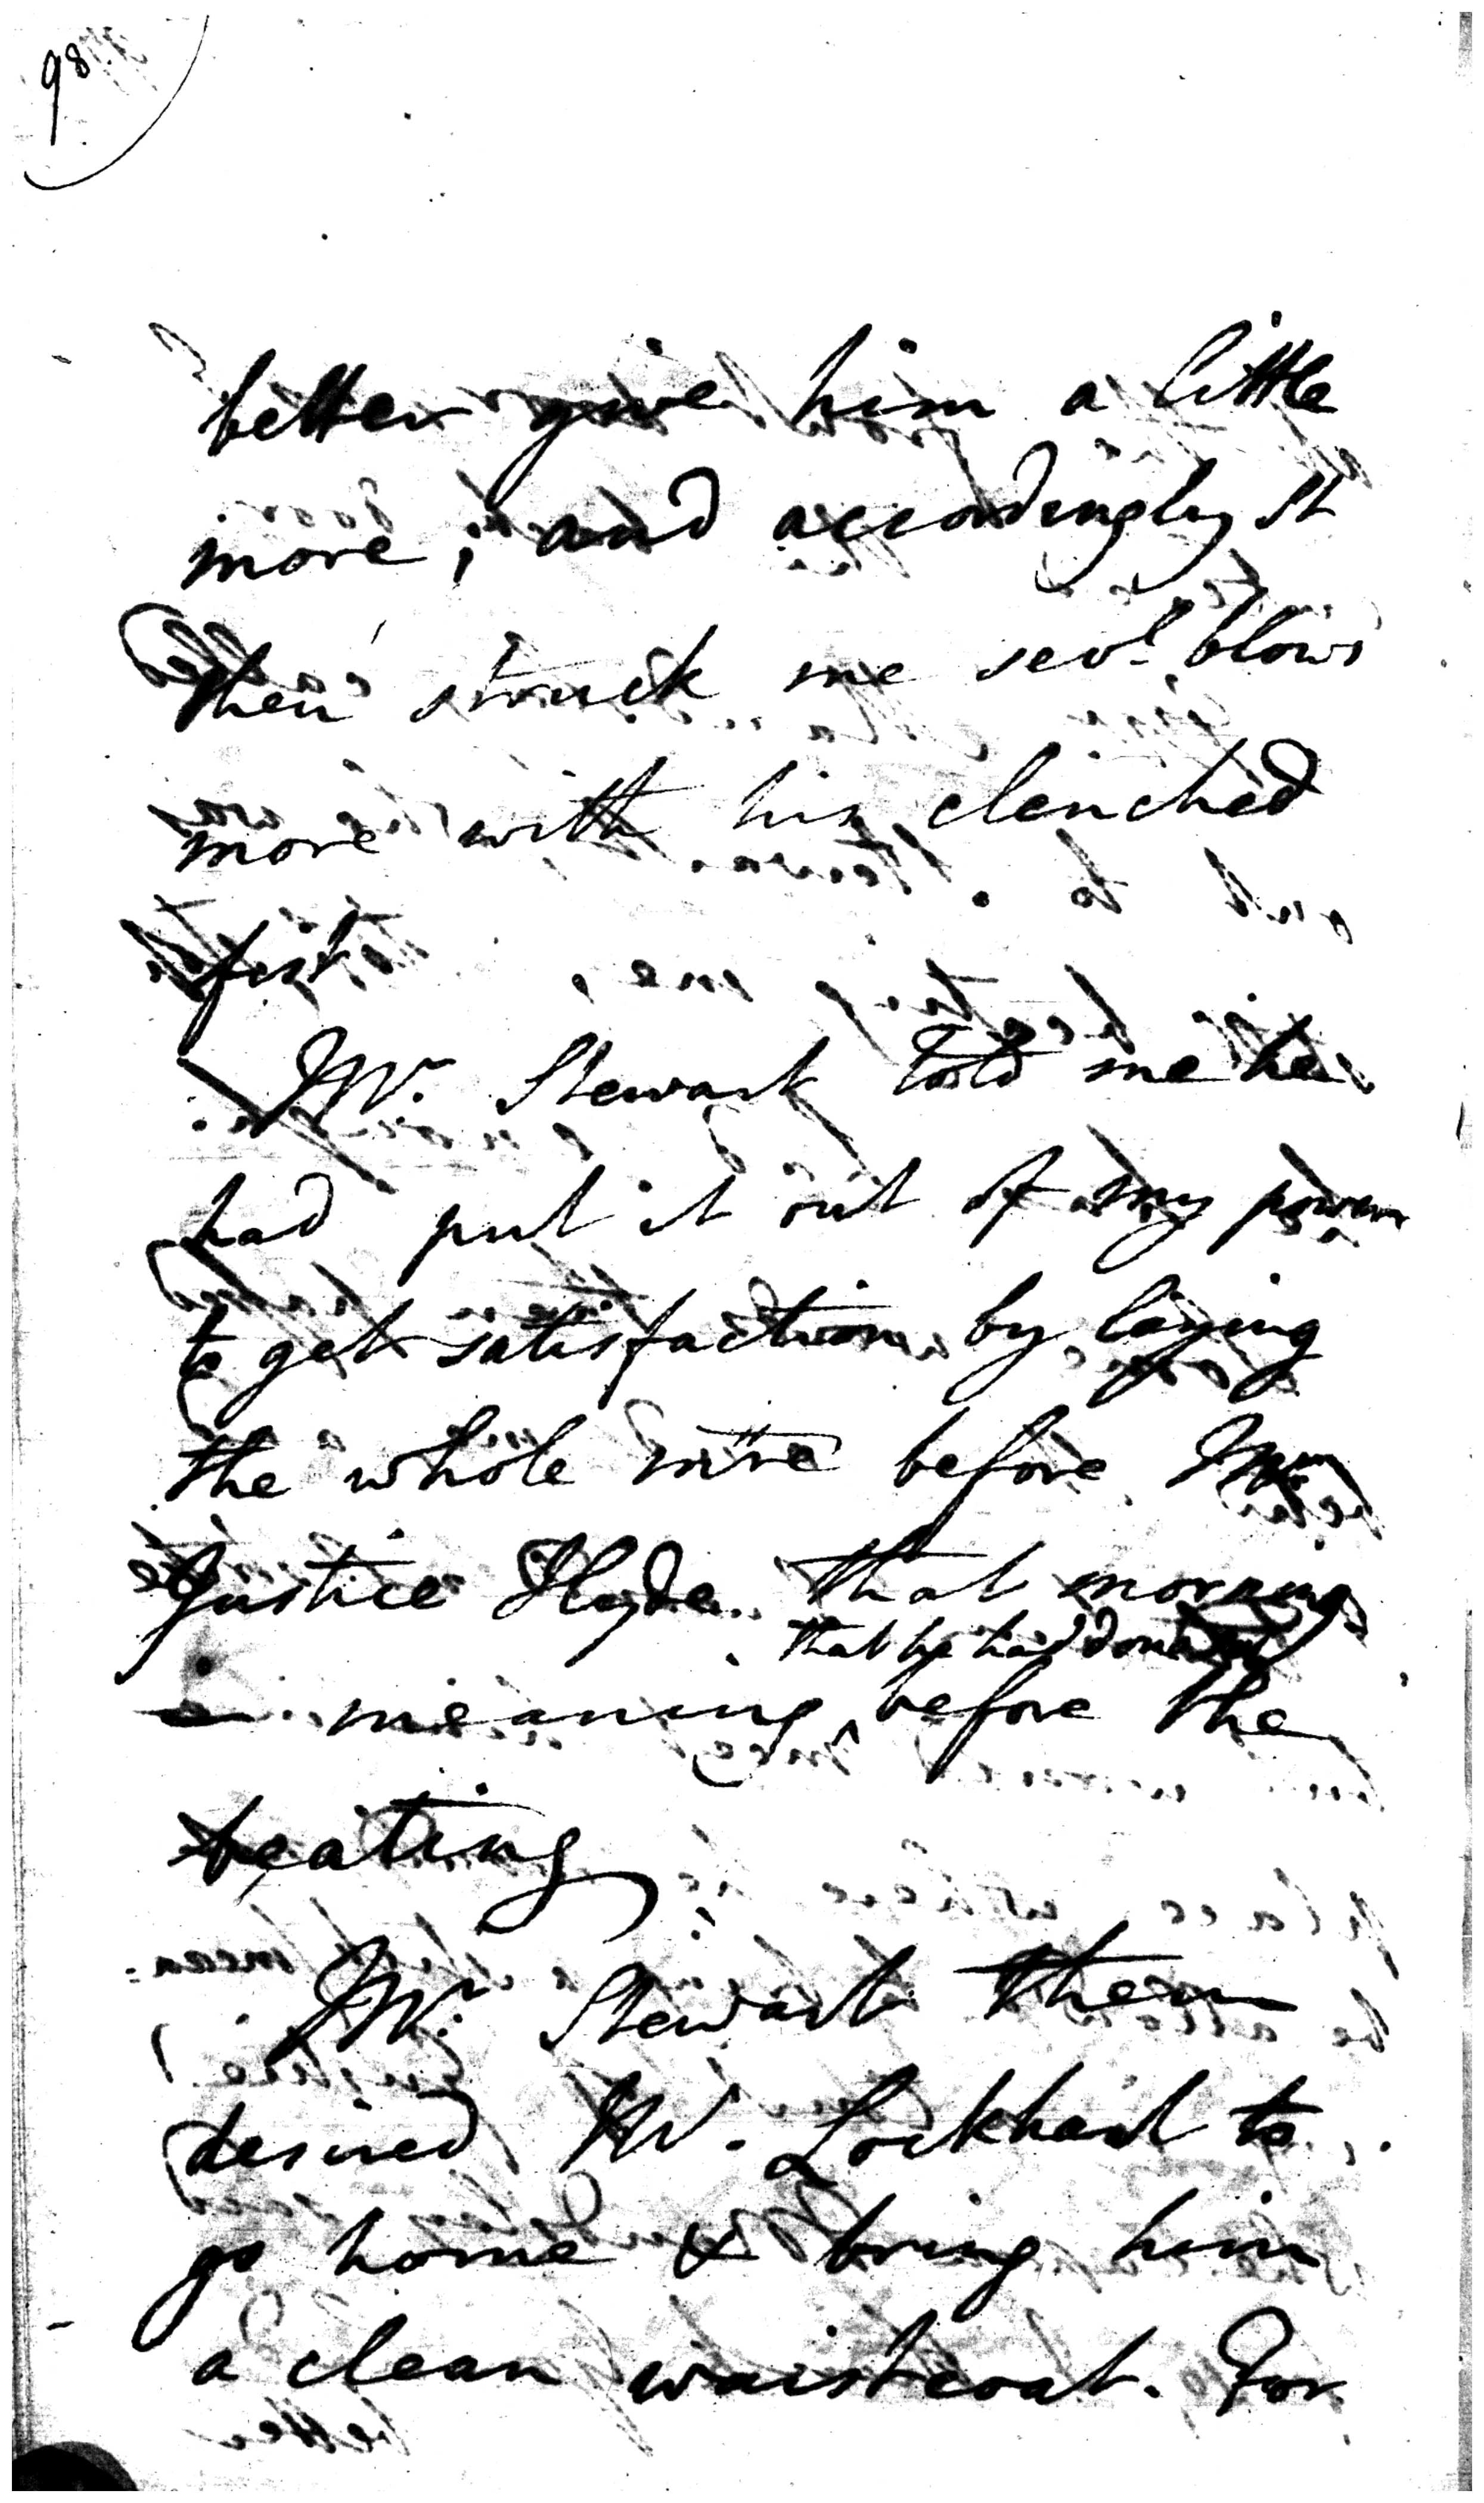 98
better give him a little
more, and accordingly St
then struck me sevl. blows
more with his clenched
fist
Mr. Stewart told me he
had put it out of my power
to get satisfaction by laying
the whole mre before Mr.
Justice Hyde that morning
that he had done
meaning ^ before the
beating
Mr. Stewart then
desired Mr. Lockhart to
go home & bring him
a clean waistcoat. For